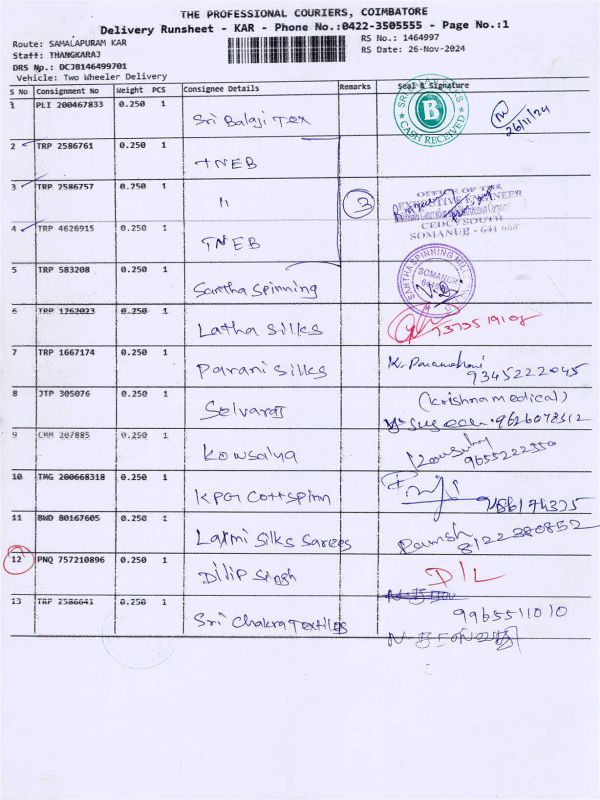 THE PROFESSIONAL COURIERS, COIMBATORE
Delivery Runsheet - KAR - Phone No.:0422-3505555 - Page No.:1
Route: SAMALAPURAM KAR
RS No.: 1464997
Staff: THANGKARAJ
RS Date: 26-Nov-2024
DRS No.: DCJB146499701
Vehicle: Two Wheeler Delivery
S No Consignment No Weight PCS Consignee Details Remarks Seal & Signature
1 PLI 200467833 0.250 1 Sri Balaji Tex CASH RECEIVED B 26/11/24
2 TRP 2586761 0.250 1 TNEB
3 TRP 2586757 0.250 1 11 3 OFFICE OF THE
EXECUTIVE ENGINEER
4 TRP 4626915 0.250 1 TNEB
CEDC / SOUTH
SOMANUR - 641 668
5 TRP 583208 0.250 1 Santha Spinning SANTHA SPINNING MILL SOMANUR
6 TRP 1762023 0.250 1 Latha Silks
7 TRP 1667174 0.250 1 Parani Silks 9345222045
8 JTP 305076 0.250 1 Selvaraj (Krishna medical)
9626078312
9 CMM 207885 0.250 1 Kowsalya 9655222550
10 TMG 200668318 0.250 1 KPG Cottspinn
11 BWD 80167605 0.250 1 Laxmi Silks Sarees Ramesh 8122380852
12 PNQ 757210896 0.250 1 Dilip Singh D/L
13 TRP 2586641 0.250 1 Sri Chakra Textiles 9965511010